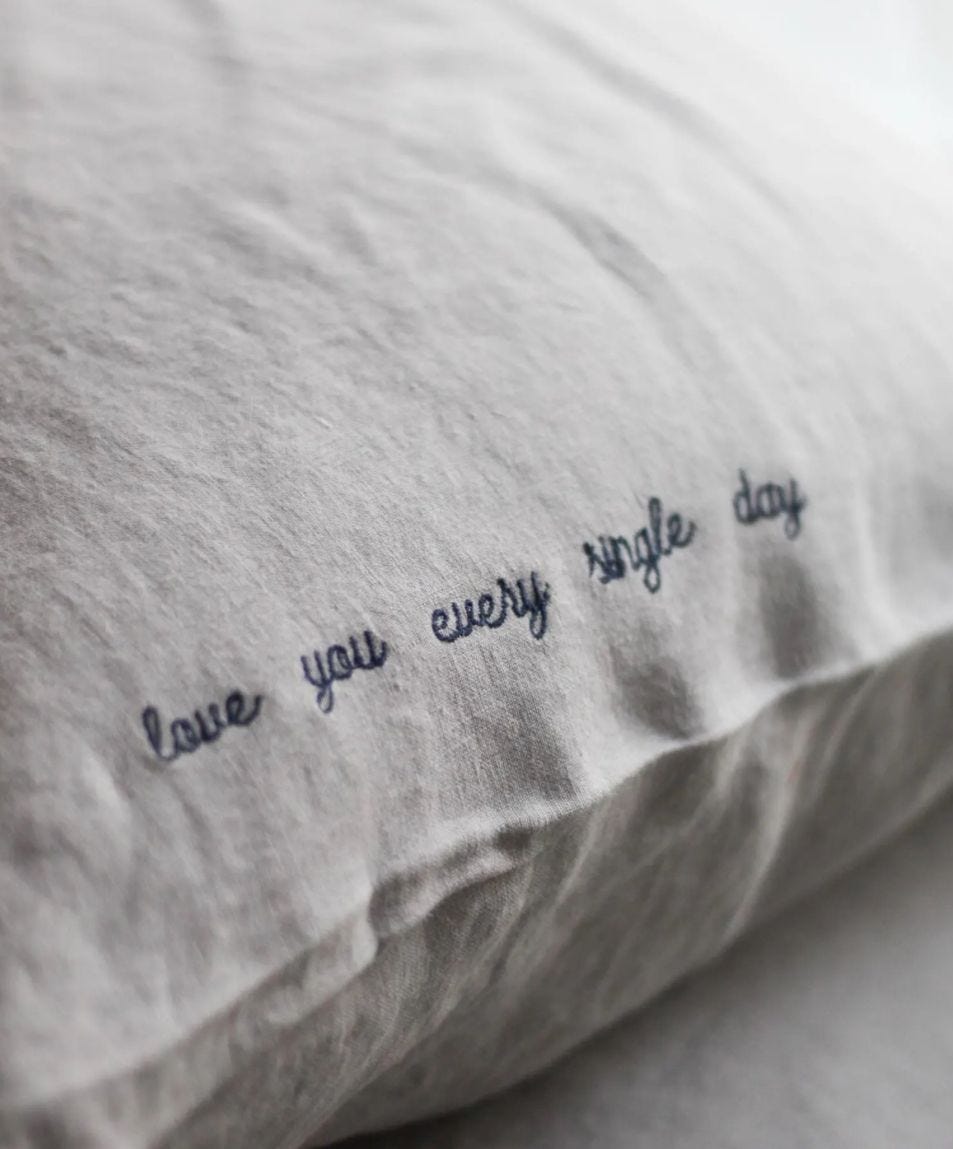 love you every single day